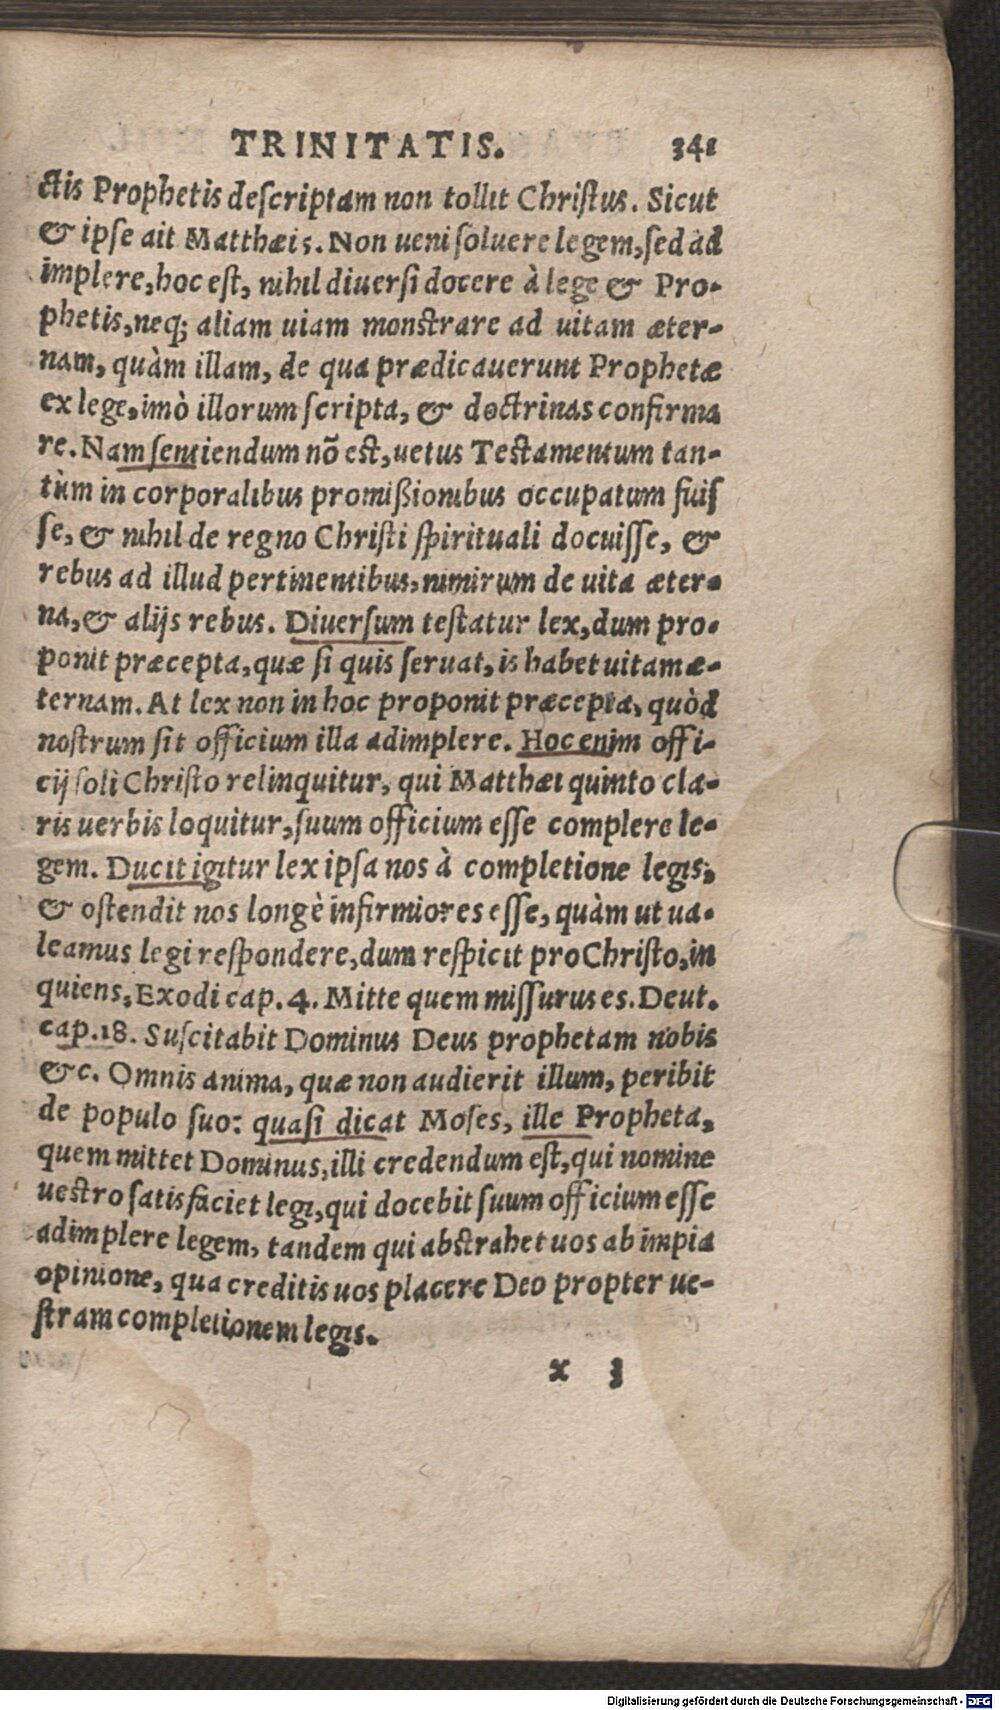 TRINITATIS. 341
ctis Prophetis deſcriptam non tollit Chriſtus. Sicut
& ipſe ait Matthæi 5. Non ueni ſoluere legem, ſed ad
implere, hoc eſt, nihil diuerſi docere à lege & Pro-
phetis, neq; aliam uiam monſtrare ad uitam æter-
nam, quàm illam, de qua prædicauerunt Prophetæ
ex lege, imò illorum ſcripta, & doctrinas confirma
re. Nam ſentiendum nō eſt, uetus Teſtamentum tan-
tùm in corporalibus promißionibus occupatum fuiſ
ſe, & nihil de regno Chriſti ſpirituali docuiſſe, &
rebus ad illud pertinentibus, nimirum de uita æter-
na, & alijs rebus. Diuerſum teſtatur lex, dum pro-
ponit præcepta, quæ ſi quis ſeruat, is habet uitam æ-
ternam. At lex non in hoc proponit præcepta, quòd
noſtrum ſit officium illa adimplere. Hoc enim offi-
cij ſoli Chriſto relinquitur, qui Matthæi quinto cla-
ris uerbis loquitur, ſuum officium eſſe complere le-
gem. Ducit igitur lex ipſa nos à completione legis,
& oſtendit nos longè infirmiores eſſe, quàm ut ua-
leamus legi reſpondere, dum reſpicit pro Chriſto, in
quiens, Exodi cap. 4. Mitte quem miſſurus es. Deut.
cap. 18. Suſcitabit Dominus Deus prophetam nobis
&c. Omnis anima, quæ non audierit illum, peribit
de populo ſuo: quaſi dicat Moſes, ille Propheta,
quem mittet Dominus, illi credendum eſt, qui nomine
ueſtro ſatisfaciet legi, qui docebit ſuum officium eſſe
adimplere legem, tandem qui abſtrahet uos ab impia
opinione, qua creditis uos placere Deo propter ue-
ſtram completionem legis.
x 3
Digitalisierung gefördert durch die Deutsche Forschungsgemeinschaft - DFG